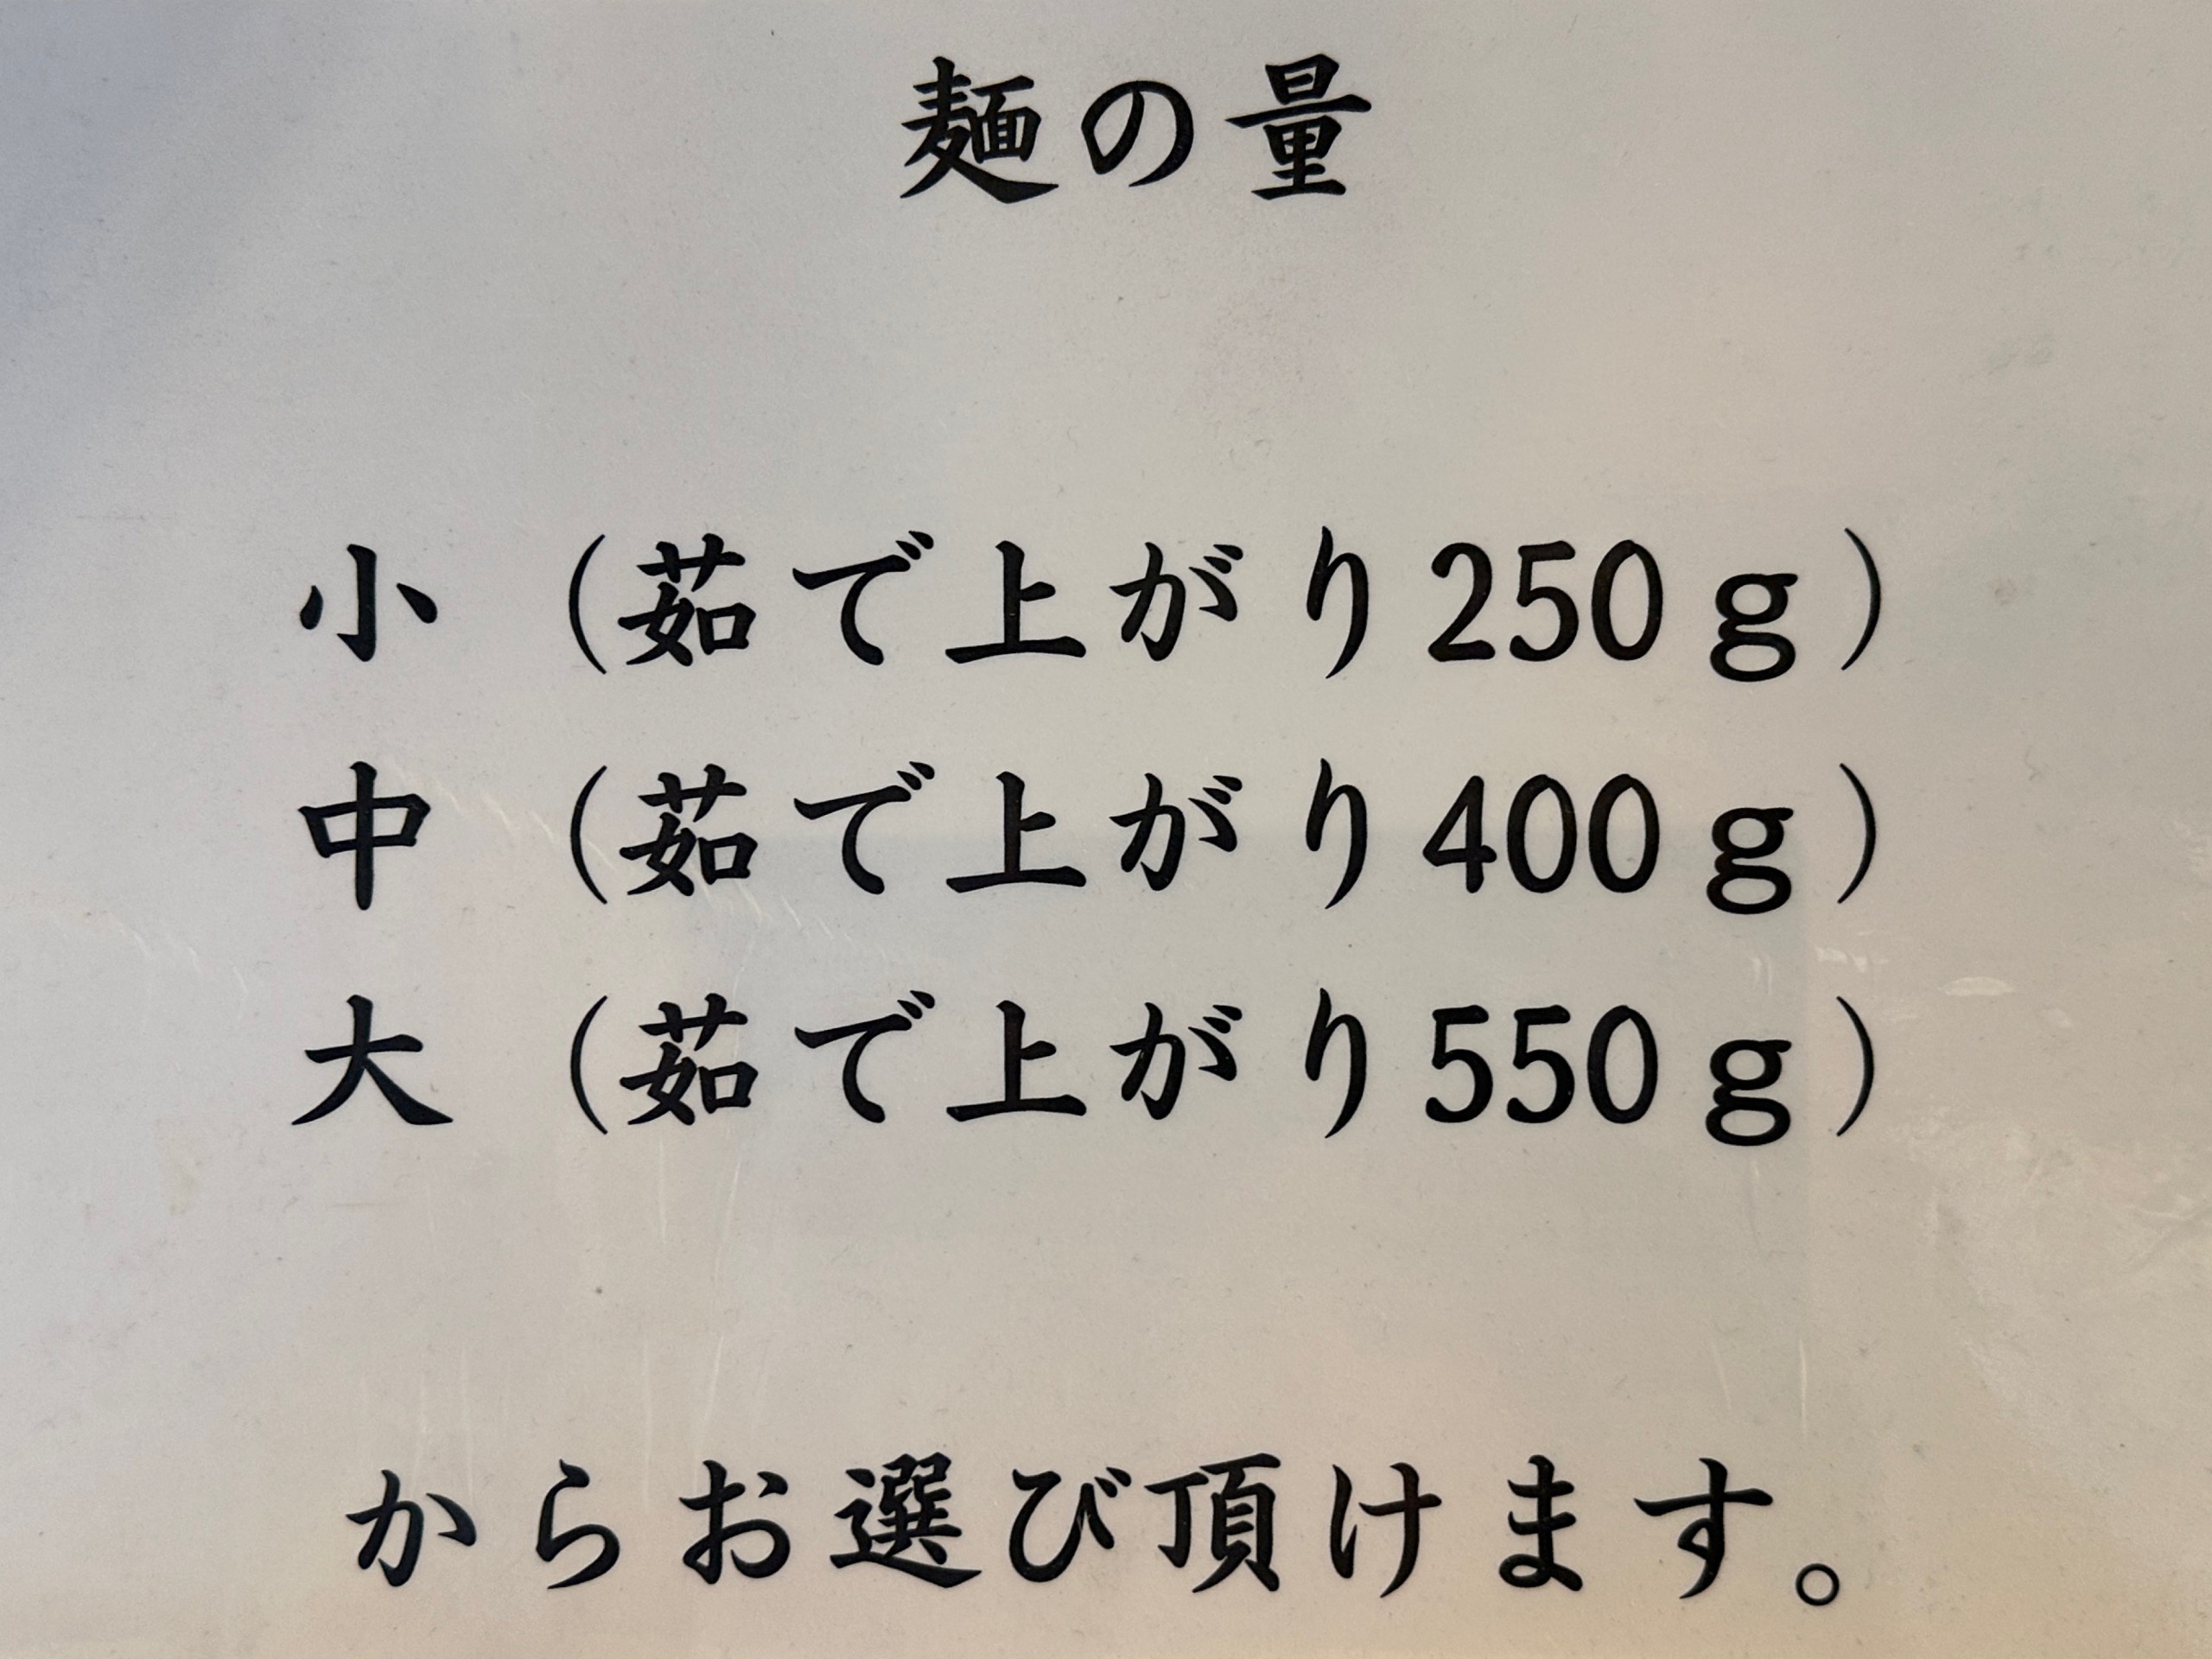 麺の量
小（茹で上がり250ｇ）
中（茹で上がり400ｇ）
大（茹で上がり550ｇ）
からお選び頂けます。